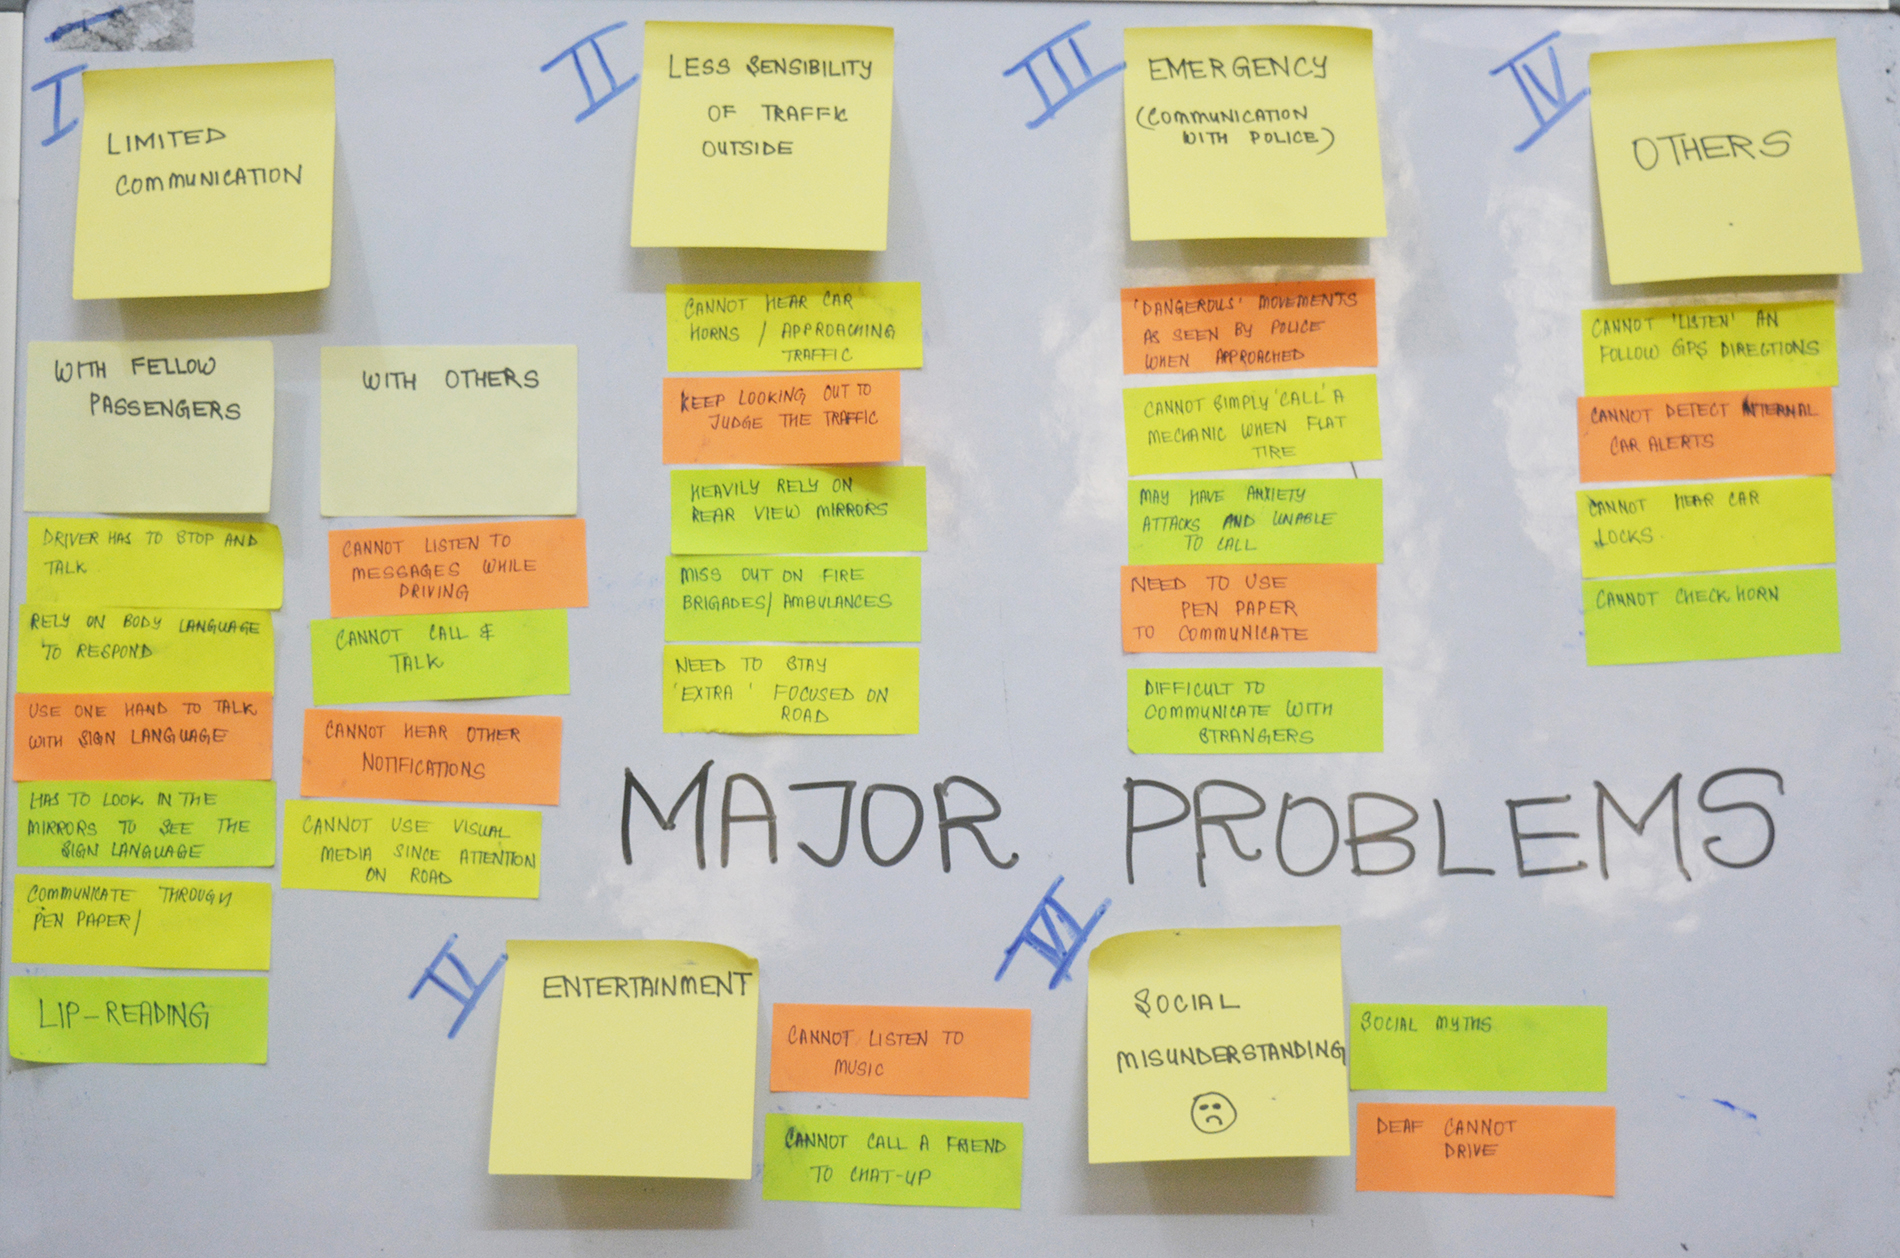 I
LIMITED
COMMUNICATION
WITH FELLOW
PASSENGERS
DRIVER HAS TO STOP AND
TALK
RELY ON BODY LANGUAGE
TO RESPOND
USE ONE HAND TO TALK
WITH SIGN LANGUAGE
HAS TO LOOK IN THE
MIRRORS TO SEE THE
SIGN LANGUAGE
COMMUNICATE THROUGH
PEN PAPER/
LIP-READING
WITH OTHERS
CANNOT LISTEN TO
MESSAGES WHILE
DRIVING
CANNOT CALL &
TALK
CANNOT HEAR OTHER
NOTIFICATIONS
CANNOT USE VISUAL
MEDIA SINCE ATTENTION
ON ROAD
II
LESS SENSIBILITY
OF TRAFFIC
OUTSIDE
CANNOT HEAR CAR
HORNS / APPROACHING
TRAFFIC
KEEP LOOKING OUT TO
JUDGE THE TRAFFIC
HEAVILY RELY ON
REAR VIEW MIRRORS
MISS OUT ON FIRE
BRIGADES/ AMBULANCES
NEED TO STAY
'EXTRA' FOCUSED ON
ROAD
III
EMERGENCY
(COMMUNICATION
WITH POLICE)
'DANGEROUS' MOVEMENTS
AS SEEN BY POLICE
WHEN APPROACHED
CANNOT SIMPLY 'CALL' A
MECHANIC WHEN FLAT
TIRE
MAY HAVE ANXIETY
ATTACKS AND UNABLE
TO CALL
NEED TO USE
PEN PAPER
TO COMMUNICATE
DIFFICULT TO
COMMUNICATE WITH
STRANGERS
IV
OTHERS
CANNOT 'LISTEN' AN
FOLLOW GPS DIRECTIONS
CANNOT DETECT INTERNAL
CAR ALERTS
CANNOT HEAR CAR
LOCKS
CANNOT CHECK HORN
MAJOR PROBLEMS
V
ENTERTAINMENT
CANNOT LISTEN TO
MUSIC
CANNOT CALL A FRIEND
TO CHAT-UP
VI
SOCIAL
MISUNDERSTANDING
SOCIAL MYTHS
DEAF CANNOT
DRIVE